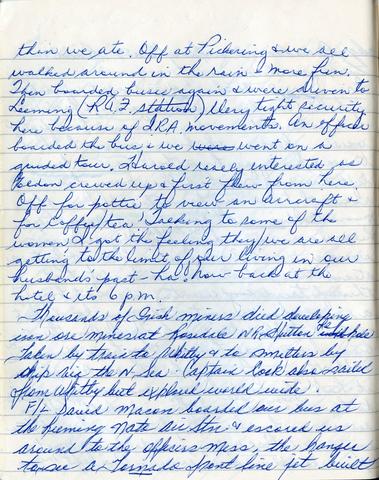 then we ate. Off at Pickering & we all
walked around in the rain & more fun.
Then boarded buses again & were driven to
Leeming (R.A.F. station) Very tight security
here because of IRA movements. An officer
boarded the bus & we went on a
guided tour. Harold really interested as
crewed up & first flew from here.
Off for pottie to view an aircraft &
for coffee/tea. Talking to some of the
women I got the feeling they/we are all
getting to the limit of our living in our
husband's past - ha! Now back at the
hotel & its 6 p.m.
Thousands of Irish miners died developing
iron ore mines at Rosedale N.R.
Taken by train to Whitby & to smelters by
ship via the N. Sea. Captain Cook also sailed
from Whitby but explored world wide.
F/L David Macon boarded our bus at
the Leeming Nato air Stn. & escored us
around to the officers mess, the hangar
to see a Tornado front line jet built